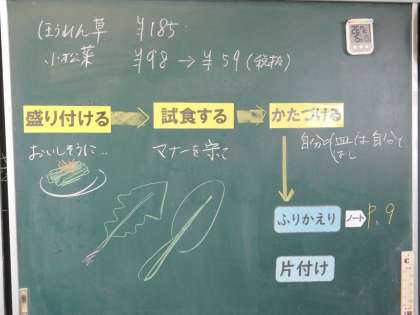 ほうれん草 ¥185
小松菜 ¥98→¥59(税抜)
盛り付ける
試食する
かたづける
おいしそうに…
マナーを守って
自分の(皿 はし)は自分で
ふりかえり ノート P.9
片付け